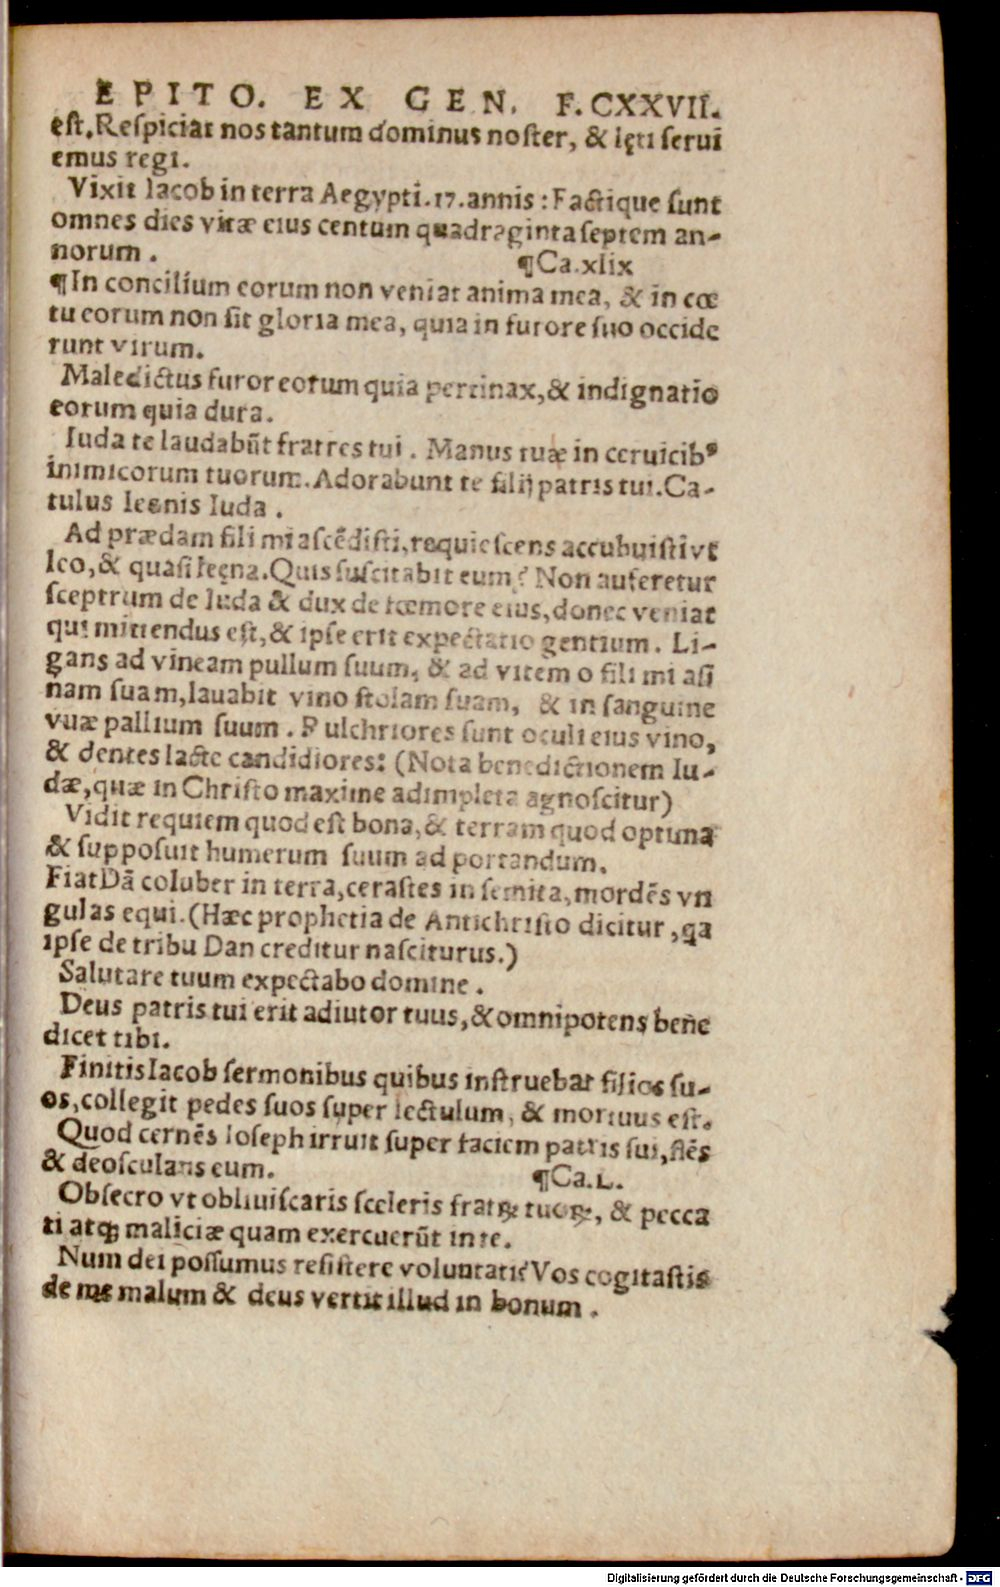 EPITO. EX GEN. F.CXXVII.
est. Respiciat nos tantum dominus noster, & lęti seruī
emus regi.
Vixit Iacob in terra Aegypti.17.annis: Factique sunt
omnes dies vitæ eius centum quadraginta septem an-
norum.
¶Ca.xlix
¶In concilium eorum non veniat anima mea, & in cœ
tu eorum non sit gloria mea, quia in furore suo occide
runt virum.
Maledictus furor eorum quia pertinax, & indignatio
eorum quia dura.
Iuda te laudabūt fratres tui. Manus tuæ in ceruicibꝰ
inimicorum tuorum. Adorabunt te filij patris tui. Ca-
tulus leonis Iuda.
Ad prædam fili mi ascēdisti, requiescens accubuisti vt
leo, & quasi leęna. Quis suscitabit eum? Non auferetur
sceptrum de Iuda & dux de fœmore eius, donec veniat
qui mittendus est, & ipse erit expectatio gentium. Li-
gans ad vineam pullum suum, & ad vitem o fili mi asi
nam suam, lauabit vino stolam suam, & in sanguine
vuæ pallium suum. Pulchriores sunt oculi eius vino,
& dentes lacte candidiores: (Nota benedictionem Iu-
dæ, quæ in Christo maxime adimpleta agnoscitur)
Vidit requiem quod est bona, & terram quod optima
& supposuit humerum suum ad portandum.
Fiat Dā coluber in terra, cerastes in semita, mordēs vn
gulas equi. (Hæc prophetia de Antichristo dicitur, qa
ipse de tribu Dan creditur nasciturus.)
Salutare tuum expectabo domine.
Deus patris tui erit adiutor tuus, & omnipotens bene
dicet tibi.
Finitis Iacob sermonibus quibus instruebat filios su-
os, collegit pedes suos super lectulum, & mortuus est.
Quod cernēs Ioseph irruit super faciem patris sui, flēs
& deosculans eum.
¶Ca.L.
Obsecro vt obliuiscaris sceleris fratꝝ tuoꝝ, & pecca
ti atqꝫ maliciæ quam exercuerūt in te.
Num dei possumus resistere voluntati? Vos cogitastis
de me malum & deus vertit illud in bonum.
Digitalisierung gefördert durch die Deutsche Forschungsgemeinschaft - DFG